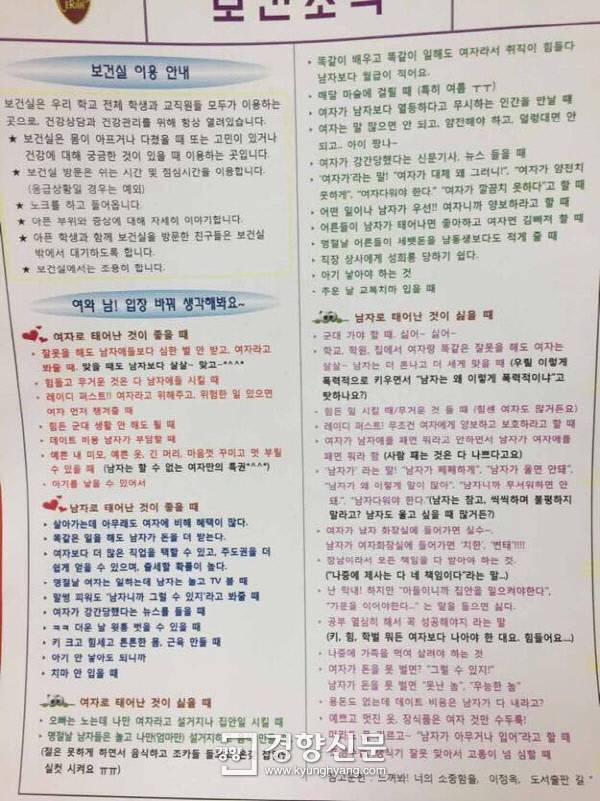 보건소식
보건실 이용 안내
보건실은 우리 학교 전체 학생과 교직원들 모두가 이용하는
곳으로, 건강상담과 건강관리를 위해 항상 열려있습니다.
★ 보건실은 몸이 아프거나 다쳤을 때 또는 고민이 있거나
건강에 대해 궁금한 것이 있을 때 이용하는 곳입니다.
★ 보건실 방문은 쉬는 시간 및 점심시간을 이용합니다.
(응급상황일 경우는 예외)
★ 노크를 하고 들어옵니다.
★ 아픈 부위와 증상에 대해 자세히 이야기합니다.
★ 아픈 학생과 함께 보건실을 방문한 친구들은 보건실
밖에서 대기하도록 합니다.
★ 보건실에서는 조용히 합니다.
여와 남! 입장 바꿔 생각해봐요~
여자로 태어난 것이 좋을 때
• 잘못을 해도 남자애들보다 심한 벌 안 받고, 여자라고
봐줄 때. 맞을 때도 남자보다 살살~ 맞고~*^^*
• 힘들고 무거운 것은 다 남자애들 시킬 때
• 레이디 퍼스트!! 여자라고 위해주고, 위험한 일 있으면
여자 먼저 챙겨줄 때
• 힘든 군대 생활 안 해도 될 때
• 데이트 비용 남자가 부담할 때
• 예쁜 내 미모, 예쁜 옷, 긴 머리, 마음껏 꾸미고 멋 부릴
수 있을 때 (남자는 할 수 없는 여자만의 특권*^^*)
• 아기를 낳을 수 있어서
남자로 태어난 것이 좋을 때
• 살아가는데 아무래도 여자에 비해 혜택이 많다.
• 똑같은 일을 해도 남자가 돈을 더 받는다.
• 여자보다 더 많은 직업을 택할 수 있고, 주도권을 더
쉽게 얻을 수 있으며, 출세할 확률이 높다.
• 명절날 여자는 일하는데 남자는 놀고 TV 볼 때
• 말썽 피워도 ‘남자니까 그럴 수 있지’라고 봐줄 때
• 여자가 강간당했다는 뉴스를 들을 때
• ㅋㅋ 더운 날 윗통 벗을 수 있을 때
• 키 크고 힘세고 튼튼한 몸, 근육 만들 때
• 아기 안 낳아도 되니까
• 치마 안 입을 때
여자로 태어난 것이 싫을 때
• 오빠는 노는데 나만 여자라고 설거지나 집안일 시킬 때
• 명절날 남자들은 놀고 나만(엄마만) 설거지하고
(절은 못하게 하면서 음식하고 조카들 돌
실컷 시켜요 ㅠㅠ)
• 똑같이 배우고 똑같이 일해도 여자라서 취직이 힘들다
남자보다 월급이 적어요.
• 매달 마술에 걸릴 때 (특히 여름 ㅜㅜ)
• 여자가 남자보다 열등하다고 무시하는 인간을 만날 때
• 여자는 말 많으면 안 되고, 얌전해야 하고, 덜렁대면 안
되고.. 아이 짱나~
• 여자가 강간당했다는 신문기사, 뉴스 들을 때
• ‘여자가’라는 말! “여자가 대체 왜 그러니!”, “여자가 얌전치
못하게”, “여자다워야 한다.” “여자가 깔끔치 못하다”고 할 때
• 어떤 일이나 남자가 우선!! 여자니까 양보하라고 할 때
• 어른들이 남자가 태어나면 좋아하고 여자면 김빠져 할 때
• 명절날 어른들이 세뱃돈을 남동생보다도 적게 줄 때
• 직장 상사에게 성희롱 당하기 쉽다.
• 아기 낳아야 하는 것
• 추운 날 교복치마 입을 때
남자로 태어난 것이 싫을 때
• 군대 가야 할 때. 싫어~ 싫어~
• 학교, 학원, 집에서 여자랑 똑같은 잘못을 해도 여자는
살살~ 남자는 더 혼나고 더 세게 맞을 때 (우릴 이렇게
폭력적으로 키우면서 “남자는 왜 이렇게 폭력적이냐”고
탓하나요?)
• 힘든 일 시킬 때/무거운 것 들 때 (힘센 여자도 많거든요)
• 레이디 퍼스트! 무조건 여자에게 양보하고 보호하라고 할 때
• 여자가 남자애를 패면 뭐라고 안하면서 남자가 여자애를
패면 뭐라 함 (사람 패는 것은 다 나쁘다고요)
• ‘남자가’ 라는 말! “남자가 째째하게”, “남자가 울면 안돼”,
“남자가 왜 이렇게 말이 많아”, “남자니까 무서워하면 안
돼.”, “남자다워야 한다.”(남자는 참고, 씩씩하며 불평하지
말라고? 남자도 울고 싶을 때 많거든?)
• 여자가 남자 화장실에 들어가면 실수~.
남자가 여자화장실에 들어가면 ‘치한’, ‘변태’!!!!
• 장남이라서 모든 책임을 다 받아야 하는 것.
(“나중에 제사는 다 네 책임이다”라는 말...)
• 난 막내! 하지만 “아들이니까 집안을 일으켜야한다”,
“가문을 이어야한다...” 는 말을 들으면 싫다.
• 공부 열심히 해서 꼭 성공해야지 라는 말
(키, 힘, 학벌 뭐든 여자보다 나아야 한 대요. 힘들어요....)
• 나중에 가족을 먹여 살려야 하는 것
• 여자가 돈을 못 벌면? “그럴 수 있지!”
남자가 돈을 못 벌면 “못난 놈”, “무능한 놈”
• 용돈도 없는데 데이트 비용은 남자가 다 내라고?
• 예쁘고 멋진 옷, 장식품은 여자 것만 수두룩!
“남자가 아무거나 입어”라고 할 때
잘못 맞아서 고통이 넘 심할 때
경향신문
www.kyunghyang.com
참고문헌 : 느껴봐! 너의 소중함을, 이정옥, 도서출판 길